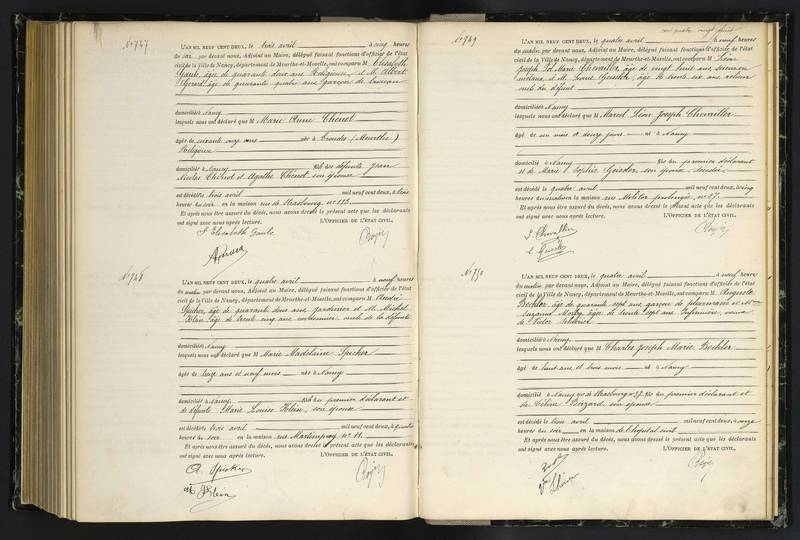 No 747
L'AN MIL NEUF CENT DEUX, le trois avril à cinq heures
du soir par devant nous, Adjoint au Maire, délégué faisant fonctions d'officier de l'état
civil de la Ville de Nancy, département de Meurthe-et-Moselle, ont comparu M Elisabeth
âgée de quarante deux ans Religieuse, et M. Albert
âgé de quarante quatre ans garçon de bureau
domiciliés à Nancy
lesquels nous ont déclaré que M Marie Anne Chénot
âgée de soixante onze ans née à (Meurthe)
Religieuse
domiciliée à Nancy fille des défunts Jean
Nicolas Chénot et Agathe Chénot son épouse
est décédée le trois avril mil neuf cent deux, à trois
heures du soir en la maison rue de Strasbourg no 113
Et après nous être assuré du décès, nous avons dressé le présent acte que les déclarants
ont signé avec nous après lecture. L'OFFICIER DE L'ÉTAT CIVIL,
No 748
L'AN MIL NEUF CENT DEUX, le quatre avril à neuf heures
du matin par devant nous, Adjoint au Maire, délégué faisant fonctions d'officier de l'état
civil de la Ville de Nancy, département de Meurthe-et-Moselle, ont comparu M André
Spicker, âgé de quarante deux ans jardinier et M. Michel
Klein âgé de trente cinq ans cordonnier, oncle de la défunte
domiciliés à Nancy
lesquels nous ont déclaré que M Marie Madelaine Spicker
âgée de treize ans et neuf mois née à Nancy
domiciliée à Nancy fille du premier déclarant et
de défunte Marie Louise Klein, son épouse
est décédée le trois avril mil neuf cent deux, à
heures du soir en la maison rue Martimprey no 11
Et après nous être assuré du décès, nous avons dressé le présent acte que les déclarants
ont signé avec nous après lecture. L'OFFICIER DE L'ÉTAT CIVIL,
A. Spicker
Klein
No 749
L'AN MIL NEUF CENT DEUX, le quatre avril à neuf heures
du matin par devant nous, Adjoint au Maire, délégué faisant fonctions d'officier de l'état
civil de la Ville de Nancy, département de Meurthe-et-Moselle, ont comparu M Léon
Joseph Marie Chevallier, âgé de vingt huit ans
et M. Louis Geissler, âgé de trente six ans
oncle du défunt
domiciliés à Nancy
lesquels nous ont déclaré que M Marcel Léon Joseph Chevallier
âgé de un mois et douze jours né à Nancy
domicilié à Nancy fils du premier déclarant
et de Marie Sophie Geissler, son épouse
est décédé le quatre avril mil neuf cent deux, à cinq
heures du matin en la maison rue Molitor prolongée no 37
Et après nous être assuré du décès, nous avons dressé le présent acte que les déclarants
ont signé avec nous après lecture. L'OFFICIER DE L'ÉTAT CIVIL,
No 750
L'AN MIL NEUF CENT DEUX, le quatre avril à neuf heures
du matin par devant nous, Adjoint au Maire, délégué faisant fonctions d'officier de l'état
civil de la Ville de Nancy, département de Meurthe-et-Moselle, ont comparu M Auguste
Bechler, âgé de quarante sept ans, garçon de pharmacie et Mme
âgée de trente sept ans Infirmière, veuve
de Victor
domiciliés à Nancy
lesquels nous ont déclaré que M Charles Joseph Marie Bechler
âgé de huit ans et trois mois né à Nancy
domicilié à Nancy rue de Strasbourg no 37 fils du premier déclarant et
de Céline son épouse
est décédé le trois avril mil neuf cent deux, à onze
heures du soir en la maison de l'hôpital civil
Et après nous être assuré du décès, nous avons dressé le présent acte que les déclarants
ont signé avec nous après lecture. L'OFFICIER DE L'ÉTAT CIVIL,